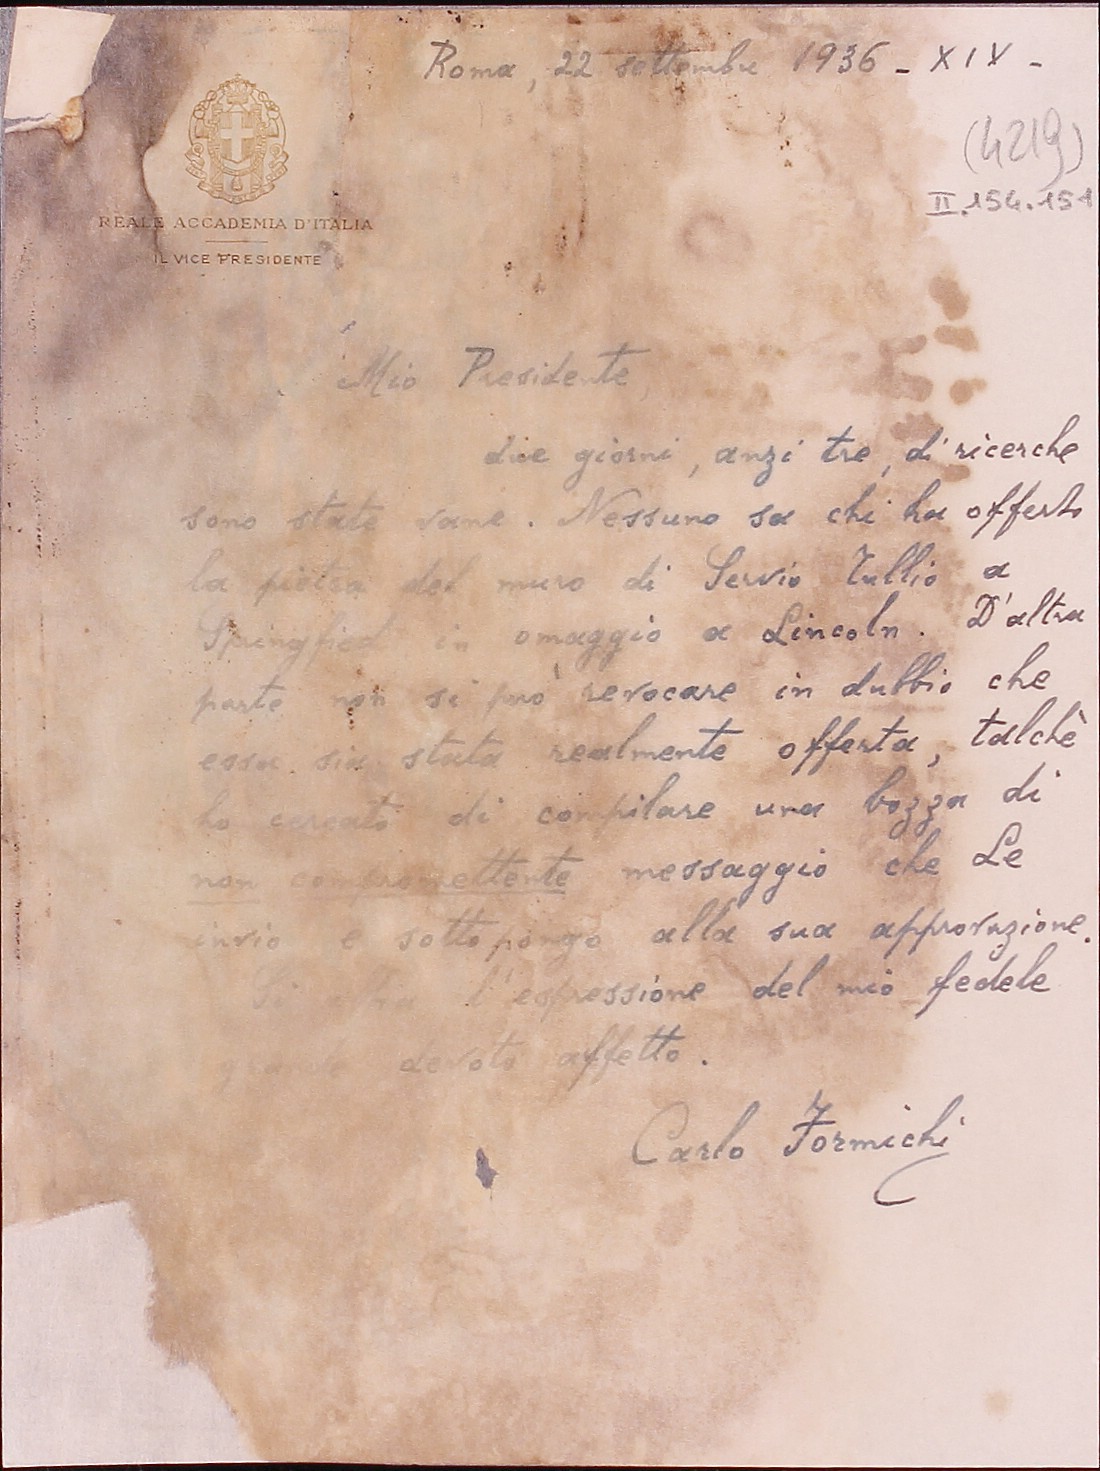 Roma, 22 settembre 1936 - XIV -
(4219)
II.154.151
REALE ACCADEMIA D'ITALIA
IL VICE PRESIDENTE
Mio Presidente,
due giorni, anzi tre, di ricerche
sono state vane. Nessuno sa chi ha offerto
la pietra del muro di Servio Tullio a
Springfield in omaggio a Lincoln. D'altra
parte non si può revocare in dubbio che
essa sia stata realmente offerta, talchè
ho cercato di compilare una bozza di
non compromettente messaggio che Le
invio e sottopongo alla sua approvazione.
l'espressione del mio fedele
devoto affetto.
Carlo Formichi